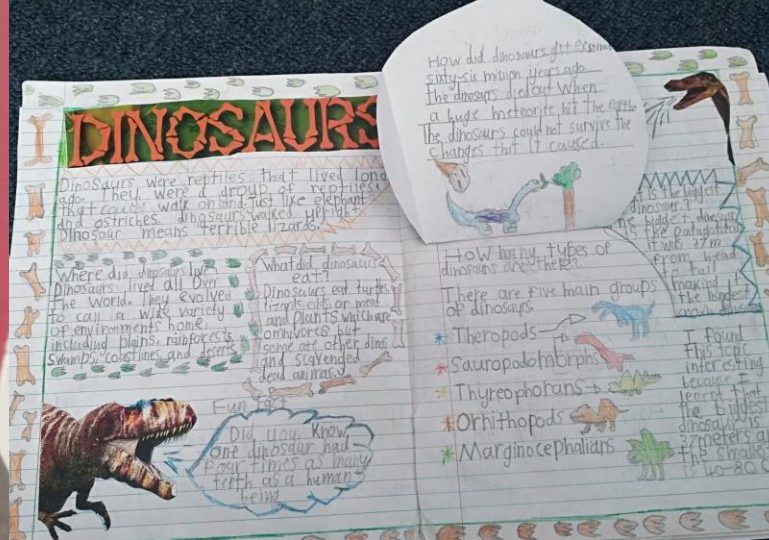 DINOSAURS
Dinosaurs were reptiles that lived long
ago. They were a group of reptiles
that could walk on land. Just like elephant
and ostriches, dinosaurs walked upright.
Dinosaur means terrible lizards.
Where did dinosaurs live
Dinosaurs lived all over
the World. They evolved
to call a wide variety
of environments home,
including plains, rainforests,
swamps, coastlines and deserts
What did dinosaurs
eat?
Dinosaurs eat turtles
lizards, eggs or meat
and plants which are
omnivores but
some ate other dinos
and scavenged
dead animals
Fun fact
Did you know
one dinosaur had
four times as many
teeth as a human
being
How did dinosaurs get
sixty-six million years ago
the dinosaurs died out when
a huge meteorite hit the earth
The dinosaurs could not survive the
changes that it caused.
How many types of
dinosaurs are there
There are five main groups
of dinosaurs.
Theropods
Sauropodomorphs
Thyreophorans
Orhithopods
Marginocephalians
is the biggest
dinosaur
biggest dinosaur
is the
it was 37m
from head
to tail
making
the biggest
I found
this topic
interesting
because I
learnt that
the biggest
dinosaur is
37meters
the smallest
is 40-80